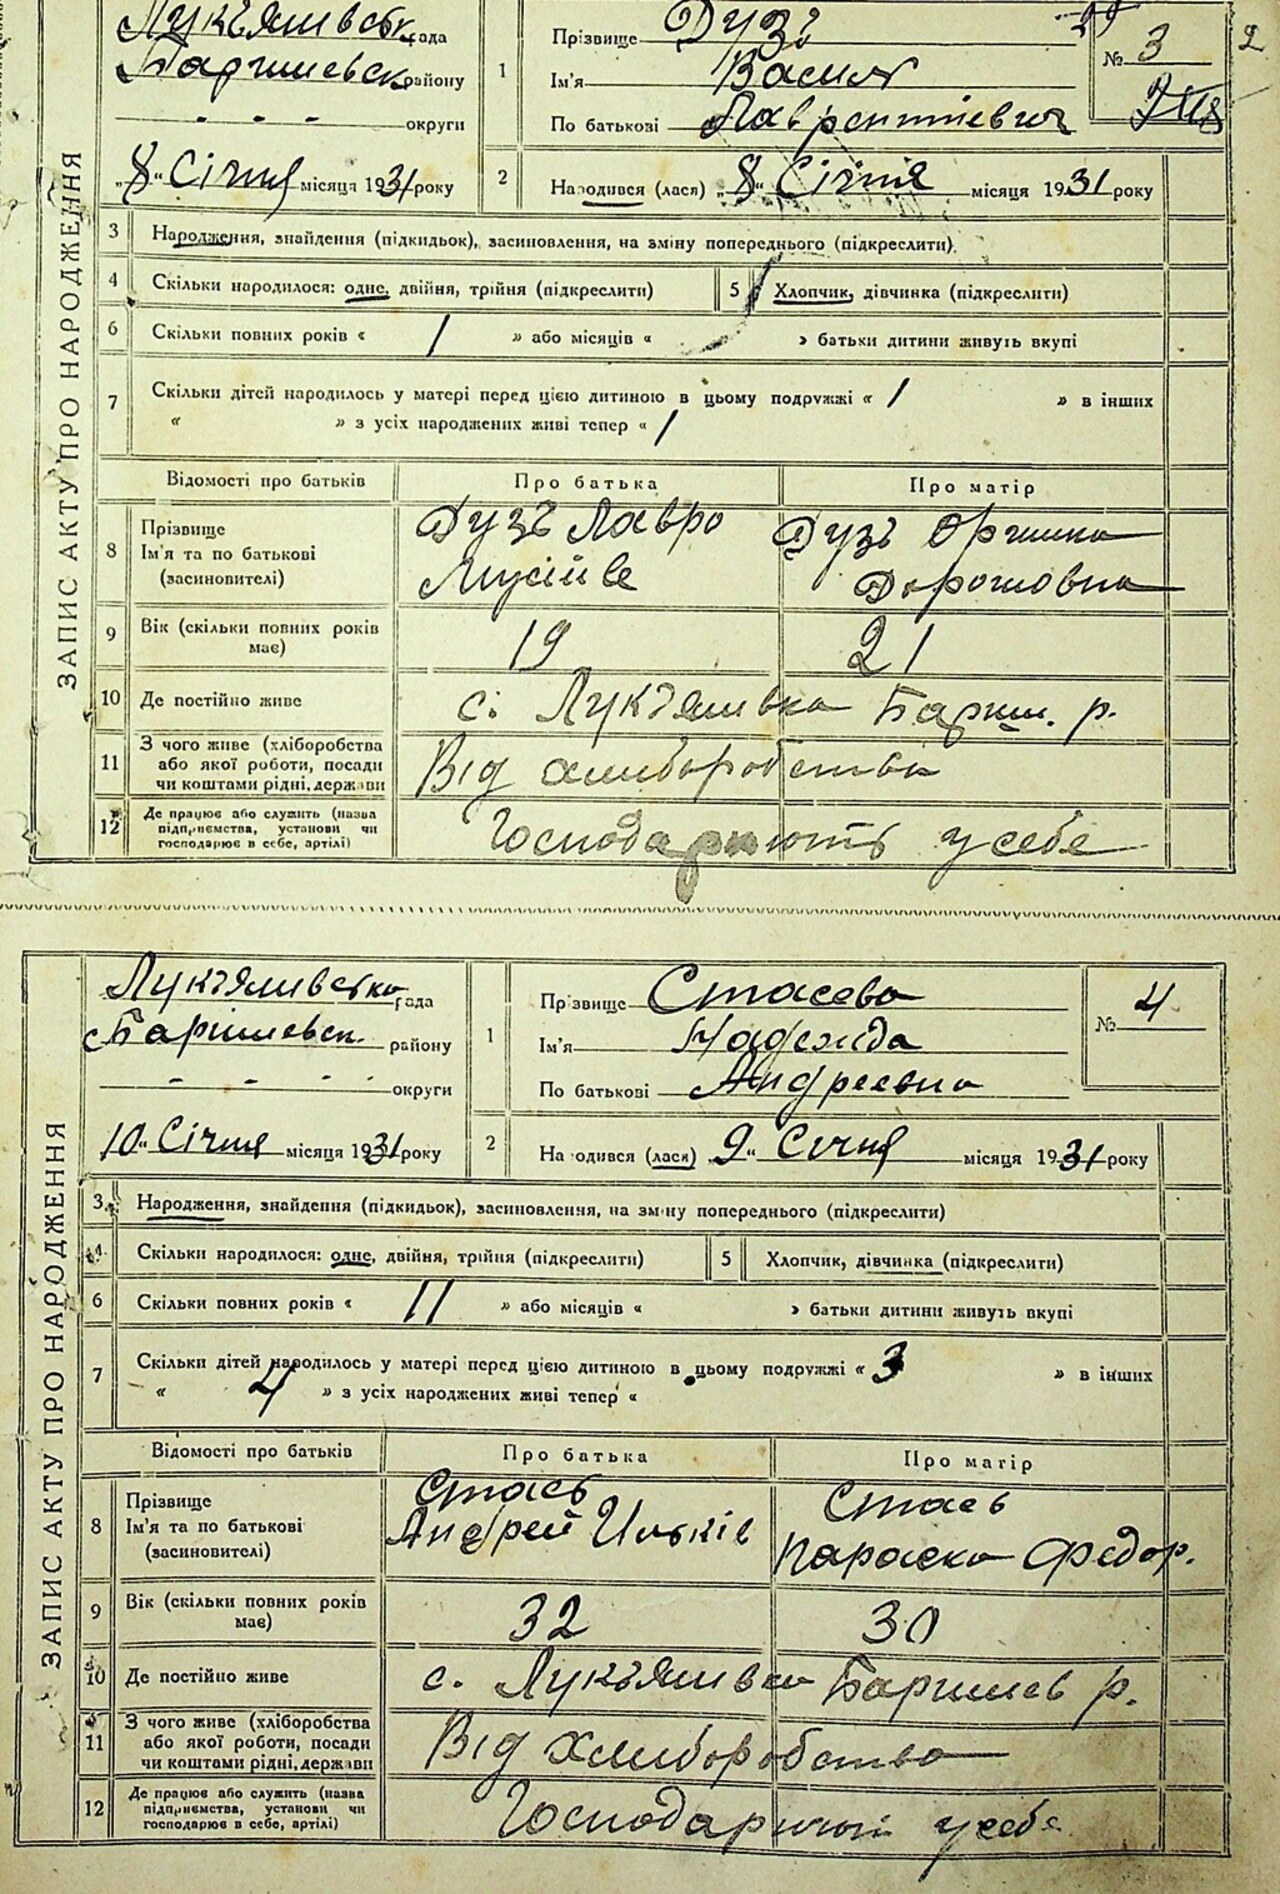 ЗАПИС АКТУ ПРО НАРОДЖЕННЯ
Лукъяшвськ рада
Баришевськ району
- - - округи
„8“ Січня місяця 1931 року
1 Прізвище Дузь
Ім'я Василь
По батькові Лаврентіевич
№ 3
2
2 Народився (лася) „8“ Січня місяця 1931 року
3 Народження, знайдення (підкидьок), засиновлення, на зміну попереднього (підкреслити)
4 Скільки народилося: одне, двійня, трійня (підкреслити) 5 Хлопчик, дівчинка (підкреслити)
6 Скільки повних років « 1 » або місяців « » батьки дитини живуть вкупі
7 Скільки дітей народилось у матері перед цією дитиною в цьому подружжі « 1 » в інших
« » з усіх народжених живі тепер « 1
Відомості про батьків Про батька Про матір
8 Прізвище
Ім'я та по батькові
(засиновителі)
Дузь Лавро
Мусійов
Дузь Оришка
Дорошовна
9 Вік (скільки повних років
має)
19 21
10 Де постійно живе с. Лукъяшвка Бариш. р.
11 З чого живе (хліборобства
або якої роботи, посади
чи коштами рідні, держави
Від хлиборобства
12 Де працює або служить (назва
підприємства, установи чи
господарює в себе, артілі)
Господарюють у себе
ЗАПИС АКТУ ПРО НАРОДЖЕННЯ
Лукъяшвська рада
Баришевськ. району
- - - - округи
10“ Січня місяця 1931 року
1 Прізвище Стасева
Ім'я Надежда
По батькові Андреевна
№ 4
2 Народився (лася) „9“ Січня місяця 1931 року
3 Народження, знайдення (підкидьок), засиновлення, на зміну попереднього (підкреслити)
4 Скільки народилося: одне, двійня, трійня (підкреслити) 5 Хлопчик, дівчинка (підкреслити)
6 Скільки повних років « 11 » або місяців « » батьки дитини живуть вкупі
7 Скільки дітей народилось у матері перед цією дитиною в цьому подружжі « 3 » в інших
« 4 » з усіх народжених живі тепер «
Відомості про батьків Про батька Про матір
8 Прізвище
Ім'я та по батькові
(засиновителі)
Стась
Андрей Ильків
Стась
Параска Федор.
9 Вік (скільки повних років
має)
32 30
10 Де постійно живе с. Лукъяшвка Баришев р.
11 З чого живе (хліборобства
або якої роботи, посади
чи коштами рідні, держави
Від хлиборобства
12 Де працює або служить (назва
підприємства, установи чи
господарює в себе, артілі)
Господарюють у себе